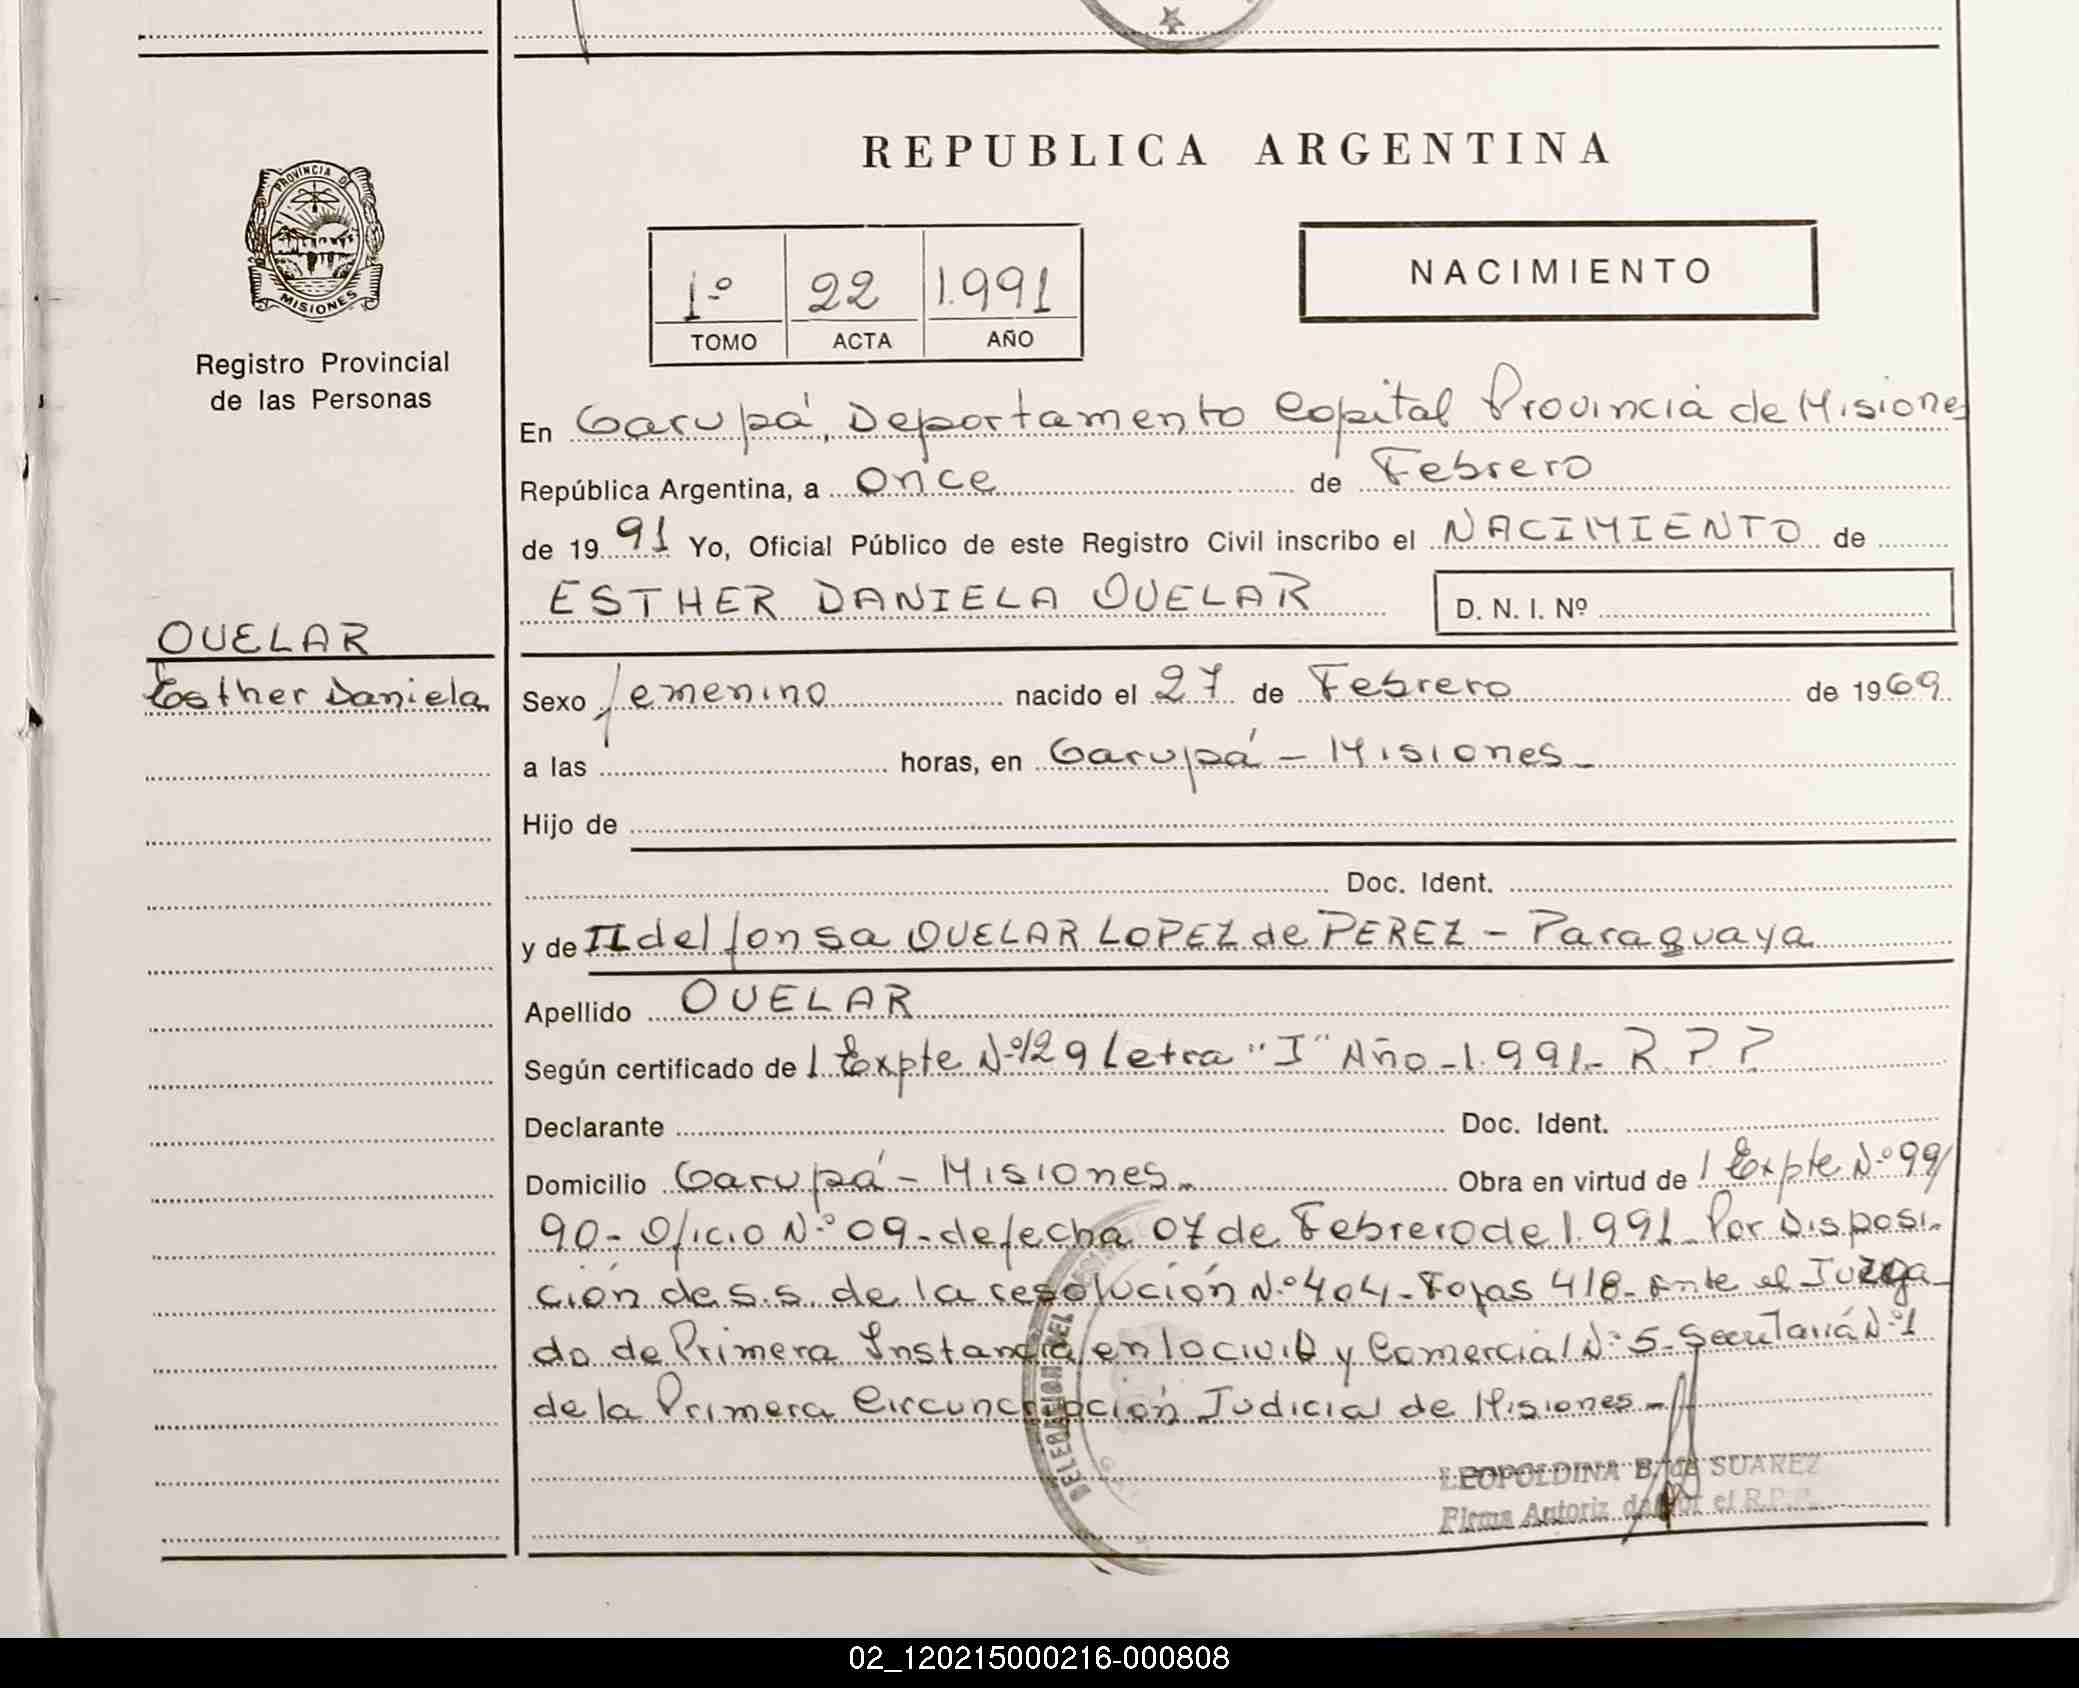 REPUBLICA ARGENTINA
PROVINCIA DE
MISIONES
Registro Provincial
de las Personas
1º 22 1.991
TOMO ACTA AÑO
NACIMIENTO
En Garupá, Departamento Capital Provincia de Misiones
República Argentina, a once de Febrero
de 1991 Yo, Oficial Público de este Registro Civil inscribo el NACIMIENTO de
ESTHER DANIELA OVELAR D. N. I. Nº
OVELAR
Esther Daniela
Sexo femenino nacido el 27 de Febrero de 1969
a las horas, en Garupá - Misiones -
Hijo de
Doc. Ident.
y de Ildelfonsa OVELAR LOPEZ de PEREZ - Paraguaya
Apellido OVELAR
Según certificado de / Expte Nº 129 Letra "I" Año - 1.991 - R P P
Declarante Doc. Ident.
Domicilio Garupá - Misiones - Obra en virtud de / Expte Nº 99/
90 - Oficio Nº 09 - de fecha 07 de Febrero de 1.991 - Por Disposi-
ción de S.S. de la resolución Nº 404 - Fojas 418 - Ante el Juzga-
do de Primera Instancia en lo Civil y Comercial Nº 5 - Secretaría Nº 1
de la Primera Circuncripción Judicial de Misiones -
DELEGACION DEL
LEOPOLDINA B. de SUAREZ
Firma Autoriz da por el R.P.P.
02_120215000216-000808